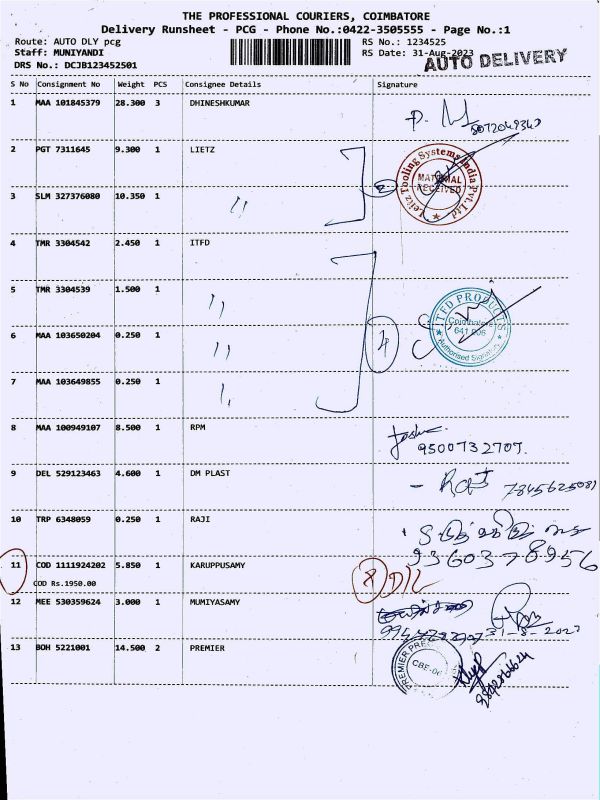 THE PROFESSIONAL COURIERS, COIMBATORE
Delivery Runsheet - PCG - Phone No.:0422-3505555 - Page No.:1
Route: AUTO DLY pcg
Staff: MUNIYANDI
DRS No.: DCJB123452501
RS No.: 1234525
RS Date: 31-Aug-2023
AUTO DELIVERY
S No Consignment No Weight PCS Consignee Details Signature
1 MAA 101845379 28.300 3 DHINESHKUMAR
2 PGT 7311645 9.300 1 LIETZ
Leitz Tooling Systems India Pvt. Ltd
MATERIAL RECEIVED
3 SLM 327376080 10.350 1 "
2
4 TMR 3304542 2.450 1 ITFD
5 TMR 3304539 1.500 1 "
ITFD PRODUCTS
Coimbatore
641 006
Authorised Signatory
6 MAA 103650204 0.250 1 "
4
7 MAA 103649855 0.250 1 "
8 MAA 100949107 8.500 1 RPM
9500732707.
9 DEL 529123463 4.600 1 DM PLAST
7845625081
10 TRP 6348059 0.250 1 RAJI
9360378956
11 COD 1111924202 5.850 1 KARUPPUSAMY
COD Rs.1950.00
12 MEE 530359624 3.000 1 MUMIYASAMY
31-8-2023
13 BOH 5221001 14.500 2 PREMIER
PREMIER
CBE-06